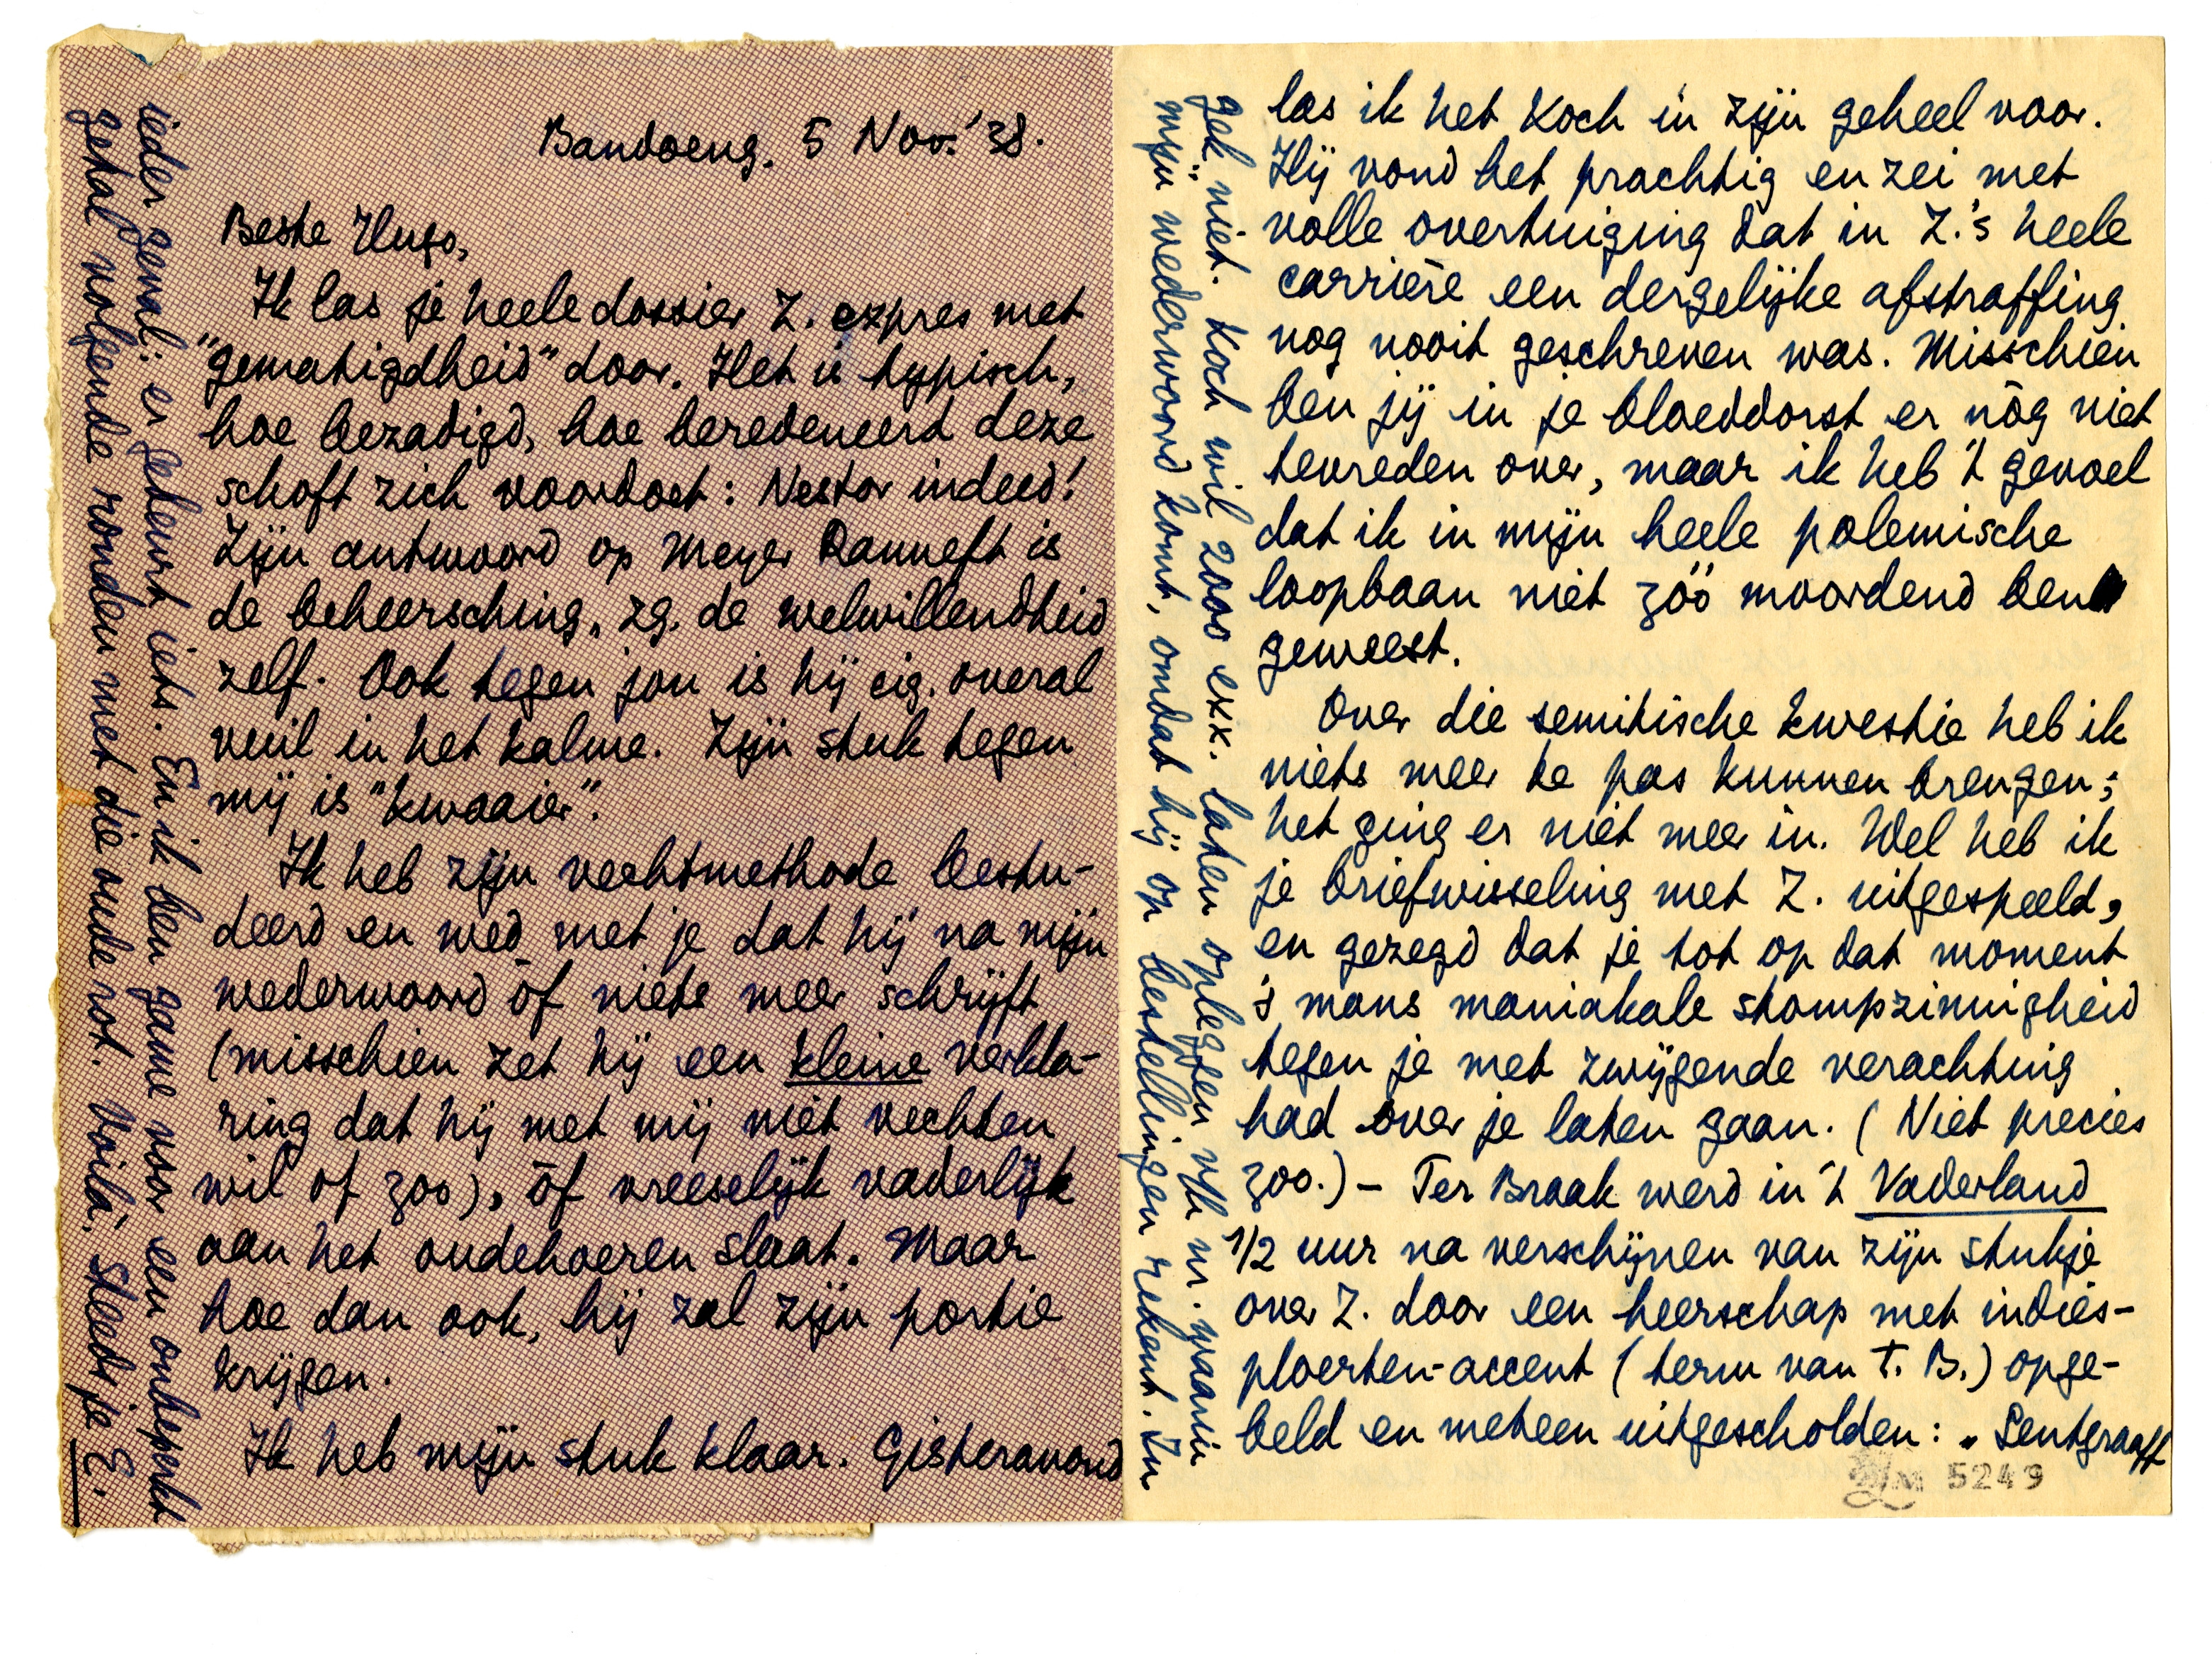 Bandoeng. 5 Nov. '38.
Beste Hugo,
Ik las je heele dossier Z. expres met
"gematigdheid" door. Het is typisch,
hoe bezadigd, hoe beredeneerd deze
schoft zich voordoet: Nestor indeed!
Zijn antwoord op Meyer Ranneft is
de beheersching, zg. de welwillendheid
zelf. Ook tegen jou is hij eig. overal
vuil in het kalme. Zijn stuk tegen
mij is "kwaaier".
Ik heb zijn vechtmethode bestu-
deerd en wed met je dat hij na mijn
wederwoord òf niets meer schrijft
(misschien zet hij een kleine verkla-
ring dat hij met mij niet vechten
wil of zoo), òf vreeselijk vaderlijk
aan het oudehoeren slaat. Maar
hoe dan ook, hij zal zijn portie
krijgen.
Ik heb mijn stuk klaar. Gisteravond
las ik het Koch in zijn geheel voor.
Hij vond het prachtig en zei met
volle overtuiging dat in Z.'s heele
carrière een dergelijke afstraffing
nog nooit geschreven was. Misschien
ben jij in je bloeddorst er nòg niet
tevreden over, maar ik heb 't gevoel
dat ik in mijn heele polemische
loopbaan niet zóó moordend ben
geweest.
Over die semitische kwestie heb ik
niets meer te pas kunnen brengen;
het ging er niet meer in. Wel heb ik
je briefwisseling met Z. uitgespeeld,
en gezegd dat je tot op dat moment
's mans maniakale stompzinnigheid
tegen je met zwijgende verachting
had over je laten gaan. (Niet precies
zoo.) – Ter Braak werd in 't Vaderland
1/2 uur na verschijnen van zijn stukje
over Z. door een heerschap met indies-
ploerten-accent (term van T. B.) opge-
beld en meteen uitgescholden: "Lentgraaff
gek niet. Koch wil 2000 exx. laten opleggen v/h nr. waarin
mijn wederwoord komt, omdat hij op bestellingen rekent. In
ieder geval: er gebeurt iets. En ik ben game voor een onbeperkt
getal volgende ronden met die oude rot. Voilà. Steeds je E.
LM 5249